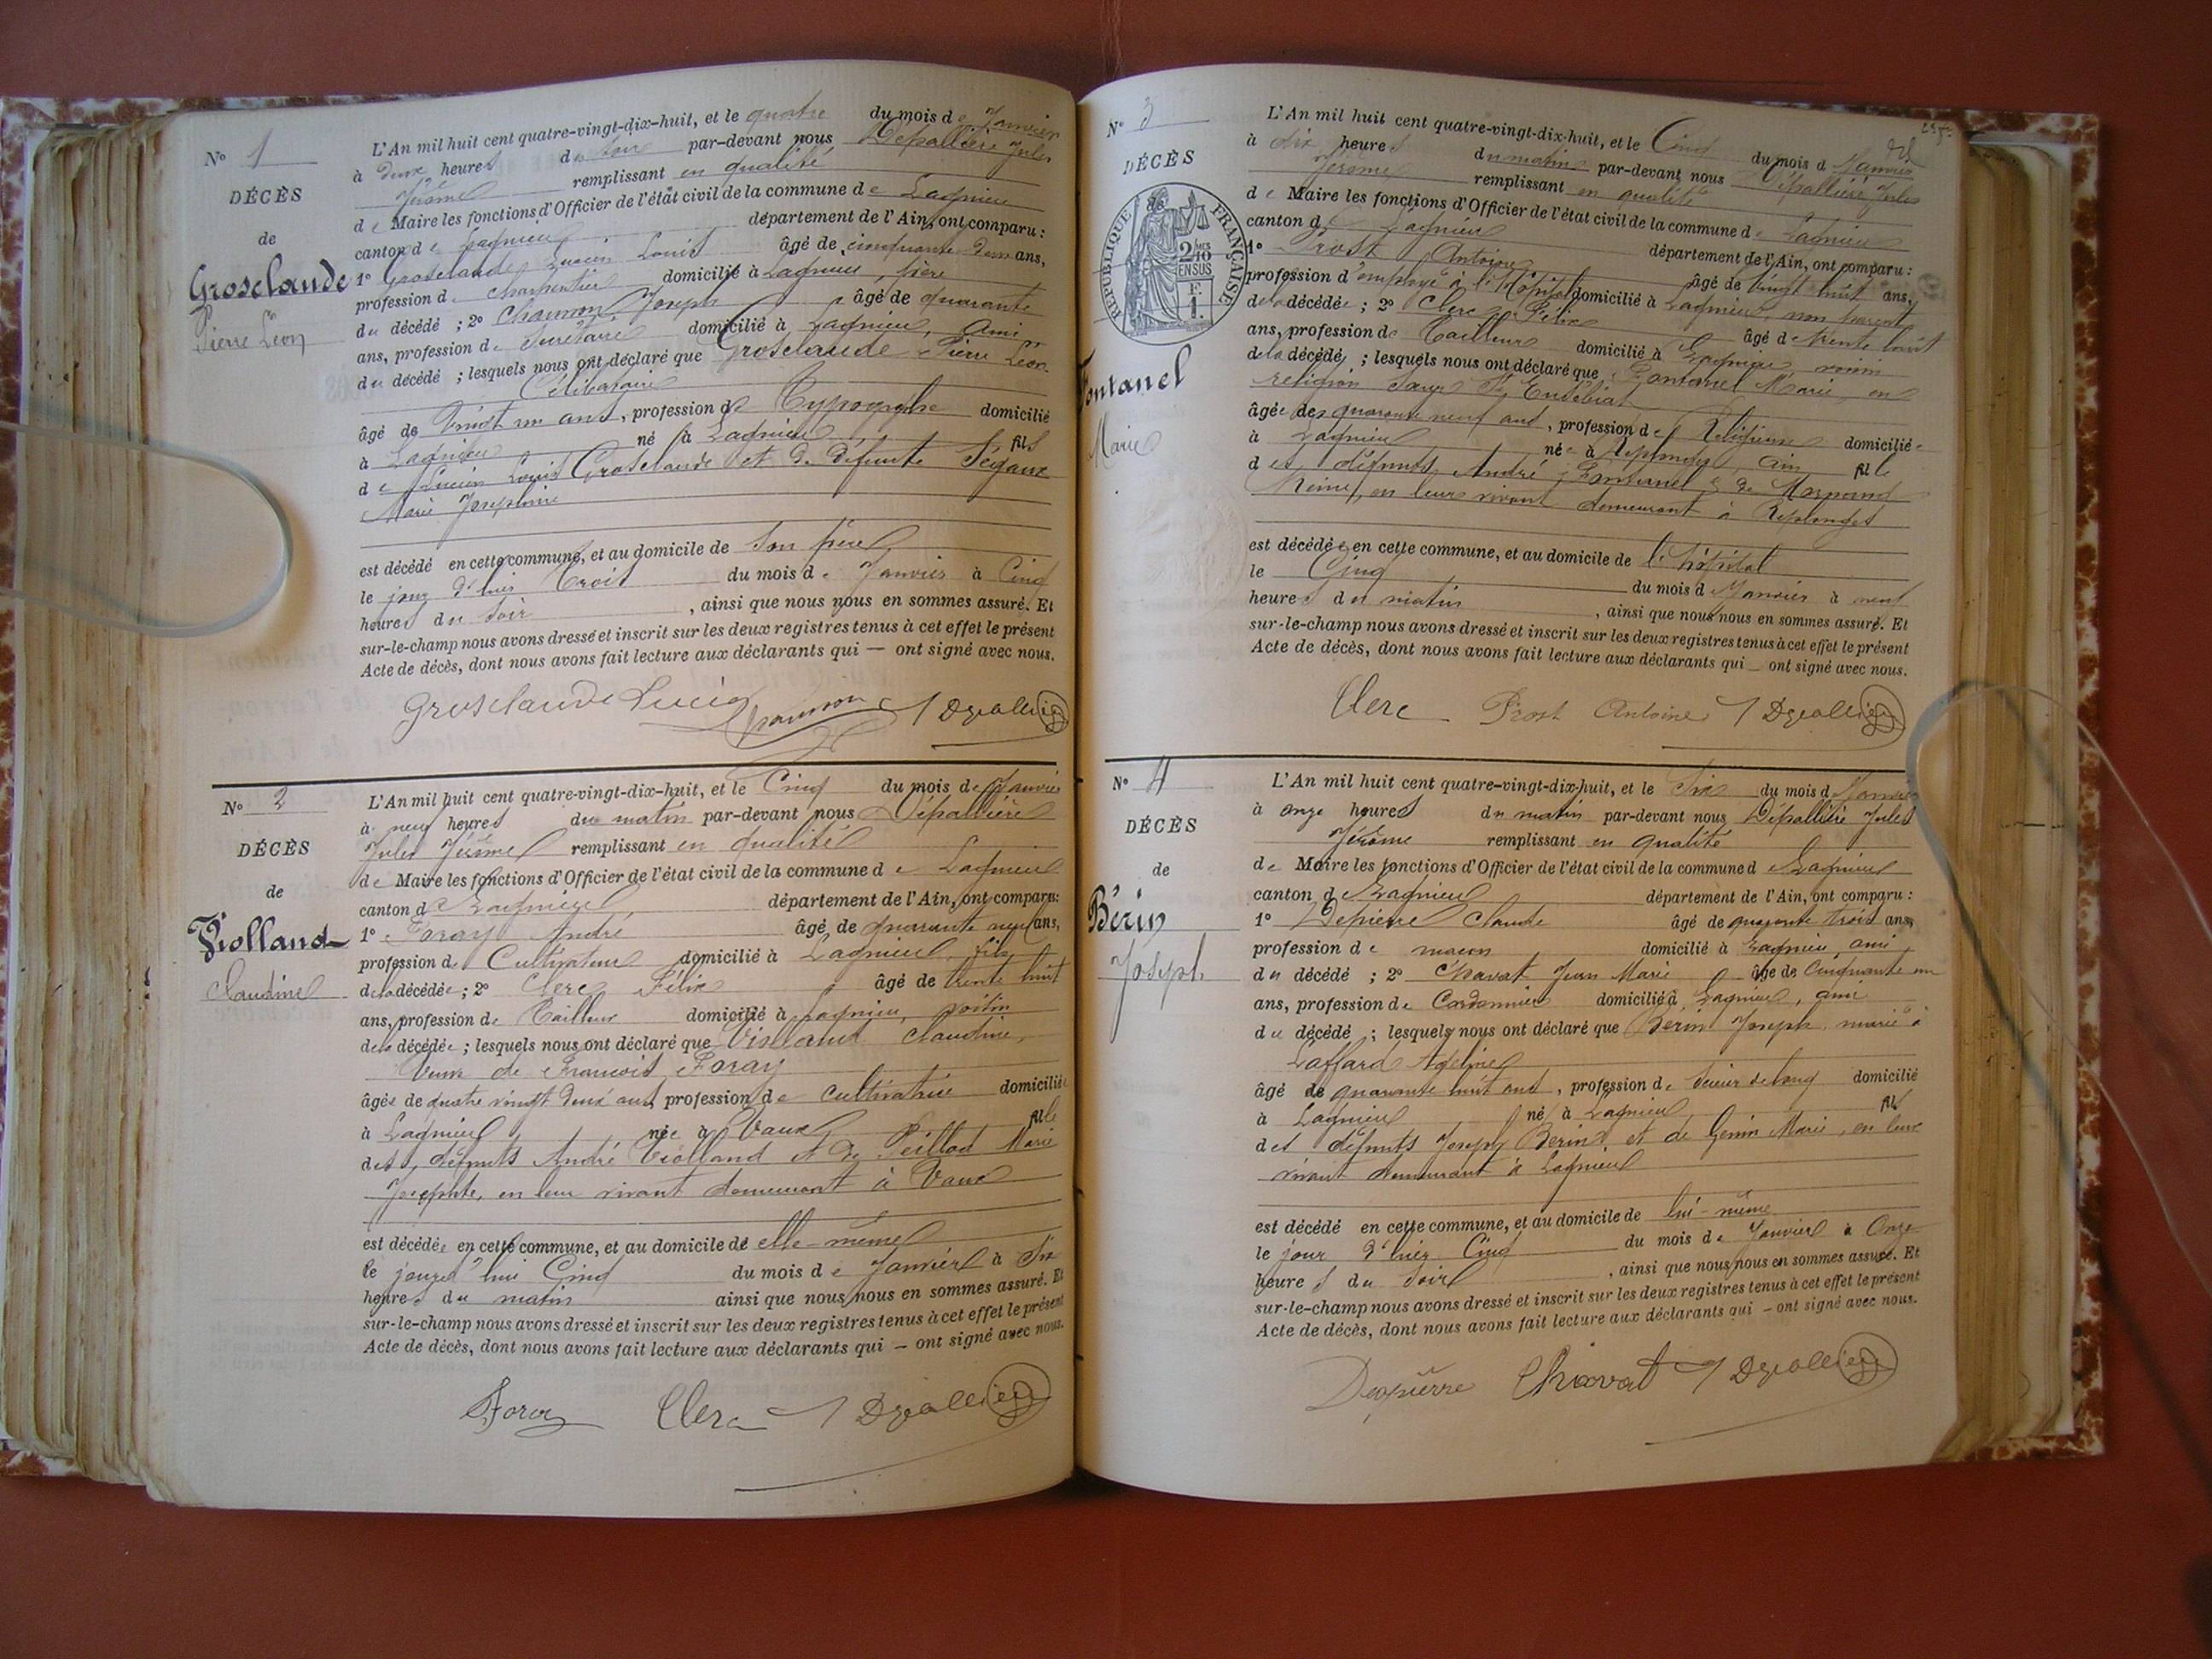 N° 1
DÉCÈS
de
Groselaude
Pierre Léon
L'An mil huit cent quatre-vingt-dix-huit, et le quatre du mois de Janvier
à deux heures du soir par-devant nous Dépallière Jules
Jérôme remplissant en qualité
de Maire les fonctions d'Officier de l'état civil de la commune de Lagnieu
canton de Lagnieu département de l'Ain, ont comparu :
1° Groselaude Lucien Louis âgé de cinquante deux ans,
profession de charpentier domicilié à Lagnieu, père
du décédé ; 2° Chamon Joseph âgé de quarante
ans, profession de Secrétaire domicilié à Lagnieu, ami
du décédé ; lesquels nous ont déclaré que Groselaude Pierre Léon
Célibataire
âgé de vingt un ans, profession de Typographe domicilié
à Lagnieu né à Lagnieu fils
de Lucien Louis Groselaude et de défunte
Marie Josephine
est décédé en cette commune, et au domicile de son père
le jour d'hier trois du mois de Janvier à Cinq
heures du soir, ainsi que nous nous en sommes assuré. Et
sur-le-champ nous avons dressé et inscrit sur les deux registres tenus à cet effet le présent
Acte de décès, dont nous avons fait lecture aux déclarants qui — ont signé avec nous.
Groselaude Lucien Chamon J Dépallière
N° 2
DÉCÈS
de
Violland
Claudine
L'An mil huit cent quatre-vingt-dix-huit, et le Cinq du mois de Janvier
à neuf heures du matin par-devant nous Dépallière
Jules Jérôme remplissant en qualité
de Maire les fonctions d'Officier de l'état civil de la commune de Lagnieu
canton de Lagnieu département de l'Ain, ont comparu :
1° Foray André âgé de quarante neuf ans,
profession de Cultivateur domicilié à Lagnieu, fils
de la décédée ; 2° Clerc Félix âgé de trente huit
ans, profession de Tailleur domicilié à Lagnieu, voisin
de la décédée ; lesquels nous ont déclaré que Violland Claudine,
Veuve de François Foray
âgée de quatre vingt deux ans, profession de cultivatrice domiciliée
à Lagnieu, née à Vaux fille
des défunts André Violland et de Peillod Marie
Josephte, en leur vivant demeurant à Vaux
est décédée en cette commune, et au domicile de elle-même
le jourd'hui Cinq du mois de Janvier à Six
heures du matin ainsi que nous nous en sommes assuré. Et
sur-le-champ nous avons dressé et inscrit sur les deux registres tenus à cet effet le présent
Acte de décès, dont nous avons fait lecture aux déclarants qui — ont signé avec nous.
Foray Clerc J Dépallière
N° 3
DÉCÈS
RÉPUBLIQUE FRANÇAISE
2/10 EN SUS
F. 1.
Fontanel
Marie
L'An mil huit cent quatre-vingt-dix-huit, et le Cinq du mois de Janvier
à dix heures du matin par-devant nous Dépallière Jules
Jérôme remplissant en qualité
de Maire les fonctions d'Officier de l'état civil de la commune de Lagnieu
canton de Lagnieu département de l'Ain, ont comparu :
1° Prost Antoine âgé de vingt huit ans,
profession d'employé à l'Hôpital domicilié à Lagnieu, non parent
de la décédée ; 2° Clerc Félix âgé de trente huit
ans, profession de Tailleur domicilié à Lagnieu, voisin
de la décédée ; lesquels nous ont déclaré que Fontanel Marie, en
religion Sœur
âgée de quarante neuf ans, profession de Religieuse domiciliée
à Lagnieu née à Replonges, Ain, fille
des défunts André Fontanel & de
en leur vivant demeurant à Replonges
est décédée en cette commune, et au domicile de l'hôpital
le Cinq du mois de Janvier à neuf
heures du matin, ainsi que nous nous en sommes assuré. Et
sur-le-champ nous avons dressé et inscrit sur les deux registres tenus à cet effet le présent
Acte de décès, dont nous avons fait lecture aux déclarants qui — ont signé avec nous.
Clerc Prost Antoine J Dépallière
N° 4
DÉCÈS
de
Bérin
Joseph
L'An mil huit cent quatre-vingt-dix-huit, et le Six du mois de Janvier
à onze heures du matin par-devant nous Dépallière Jules
Jérôme remplissant en qualité
de Maire les fonctions d'Officier de l'état civil de la commune de Lagnieu
canton de Lagnieu département de l'Ain, ont comparu :
1° Depierre Claude âgé de quarante trois ans,
profession de maçon domicilié à Lagnieu, ami
du décédé ; 2° Chavat Jean Marie âgé de Cinquante un
ans, profession de Cordonnier domicilié à Lagnieu, ami
du décédé ; lesquels nous ont déclaré que Bérin Joseph, marié à
Laffard Adeline
âgé de quarante huit ans, profession de Scieur de long domicilié
à Lagnieu né à Lagnieu fils
des défunts Joseph Berin et de Genin Marie, en leur
vivant demeurant à Lagnieu
est décédé en cette commune, et au domicile de lui-même
le jour d'hier Cinq du mois de Janvier à Onze
heures du soir, ainsi que nous nous en sommes assuré. Et
sur-le-champ nous avons dressé et inscrit sur les deux registres tenus à cet effet le présent
Acte de décès, dont nous avons fait lecture aux déclarants qui — ont signé avec nous.
Depierre Chavat J Dépallière